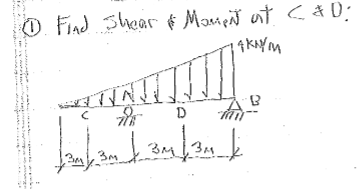 ① Find Shear & Moment at C & D:
4KN/m
C D B
3m 3m 3m 3m